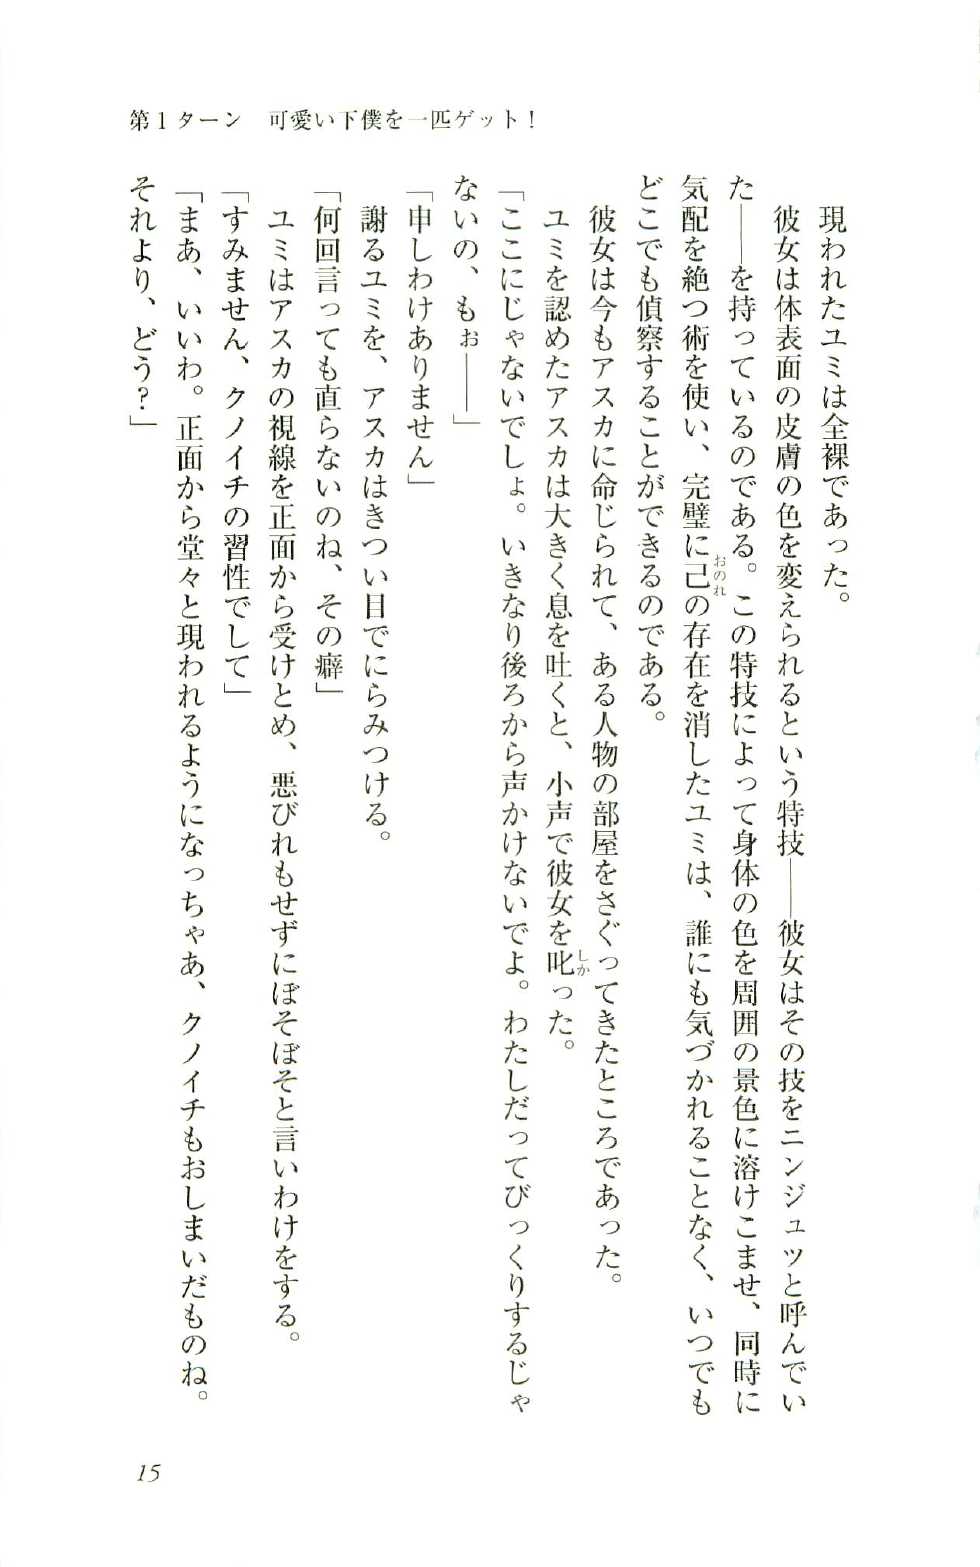 第1ターン　可愛い下僕を一匹ゲット！
　現われたユミは全裸であった。
　彼女は体表面の皮膚の色を変えられるという特技——彼女はその技をニンジュツと呼んでい
た——を持っているのである。この特技によって身体の色を周囲の景色に溶けこませ、同時に
気配を絶つ術を使い、完璧に己の存在を消したユミは、誰にも気づかれることなく、いつでも
おのれ
どこでも偵察することができるのである。
　彼女は今もアスカに命じられて、ある人物の部屋をさぐってきたところであった。
　ユミを認めたアスカは大きく息を吐くと、小声で彼女を叱った。
しか
「ここにじゃないでしょ。いきなり後ろから声かけないでよ。わたしだってびっくりするじゃ
ないの、もぉ——」
「申しわけありません」
　謝るユミを、アスカはきつい目でにらみつける。
「何回言っても直らないのね、その癖」
　ユミはアスカの視線を正面から受けとめ、悪びれもせずにぼそぼそと言いわけをする。
「すみません、クノイチの習性でして」
「まあ、いいわ。正面から堂々と現われるようになっちゃあ、クノイチもおしまいだものね。
それより、どう？」
15